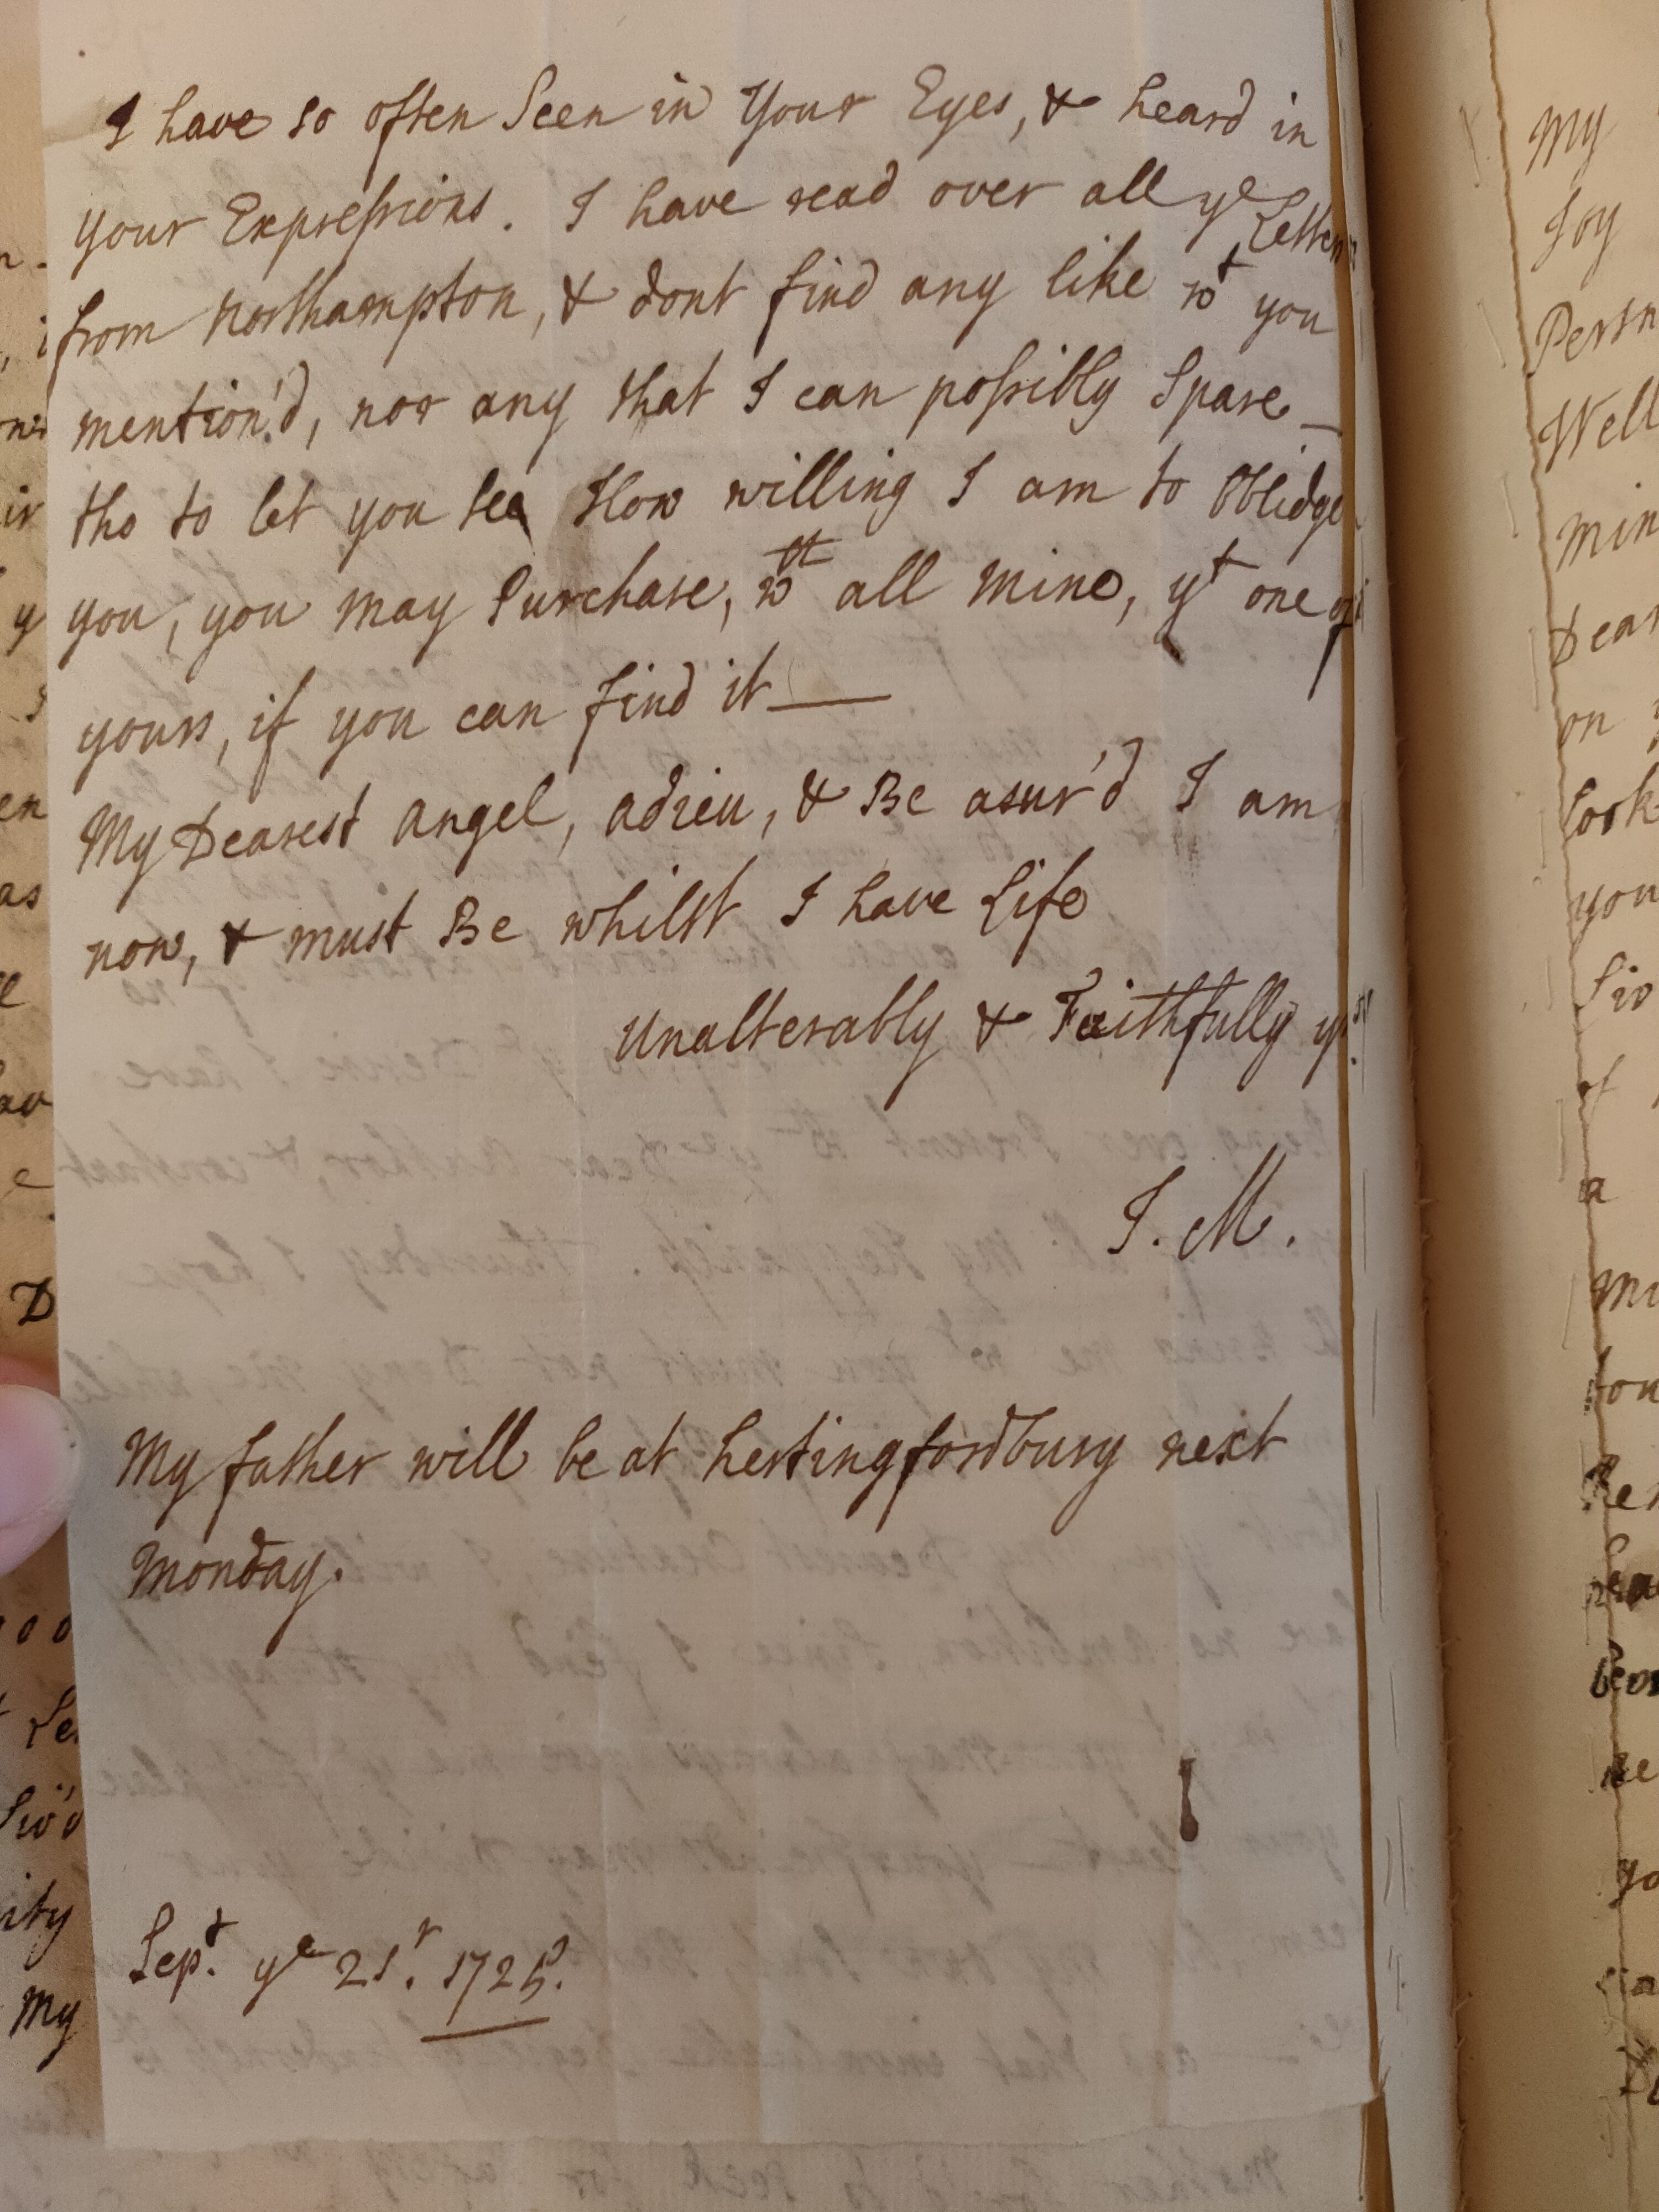 I have so often Seen in Your Eyes, & heard in
your Expressions. I have read over all ye Letters
from Northampton, & dont find any like wt you
mention'd, nor any that I can possibly Spare
tho to let you see How willing I am to Oblidge
you, you may Purchase, wth all mine, yt one of
yours, if you can find it —
My Dearest angel, adieu, & Be asur'd I am
now, & must Be whilst I have Life
Unalterably & Faithfully yrs
I. M.
My father will be at hertingfordbury next
Monday.
Sept. ye 21. 1725.